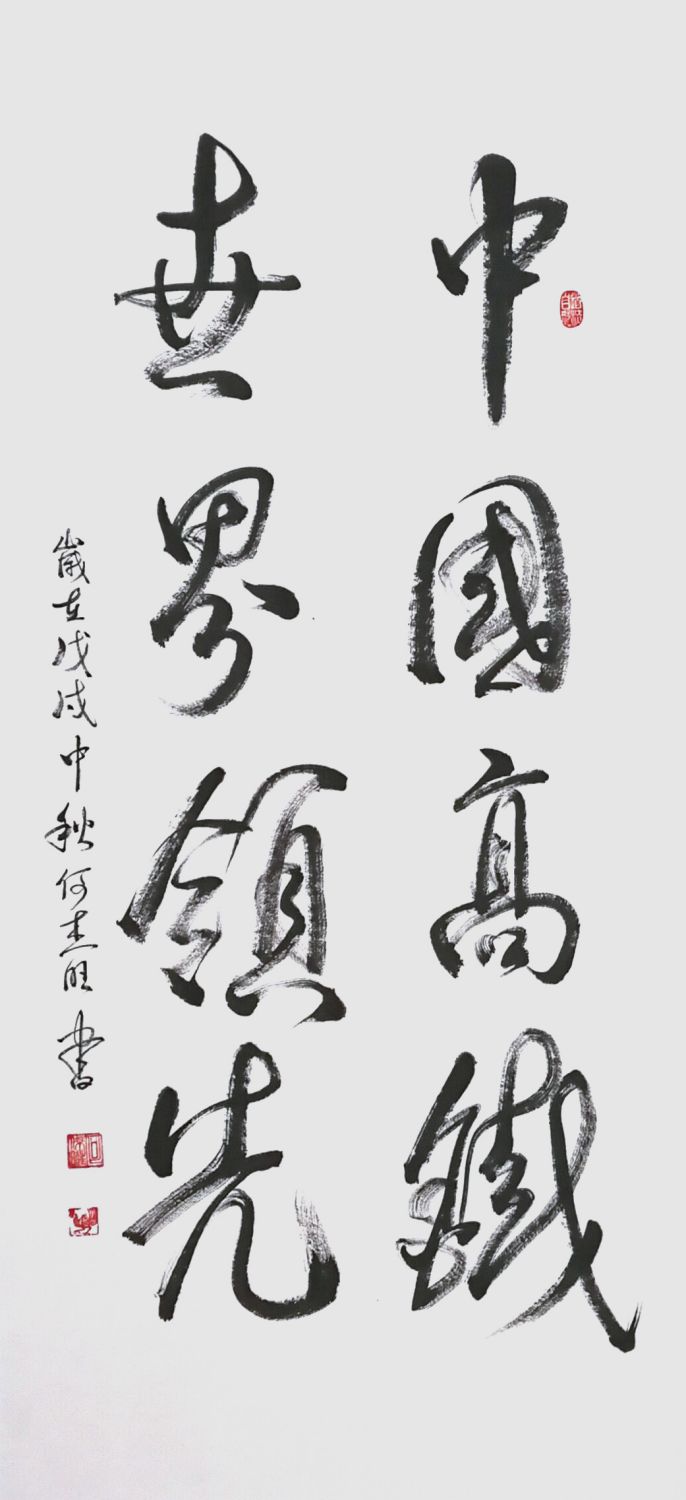 中國高鐵
世界領先
歲在戊戌中秋何志旺書